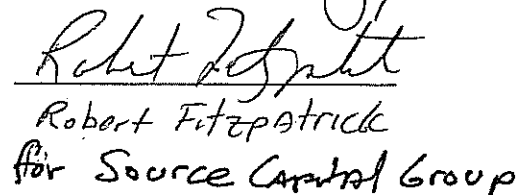 Robert Fitzpatrick
Robert Fitzpatrick
for Source Capital Group